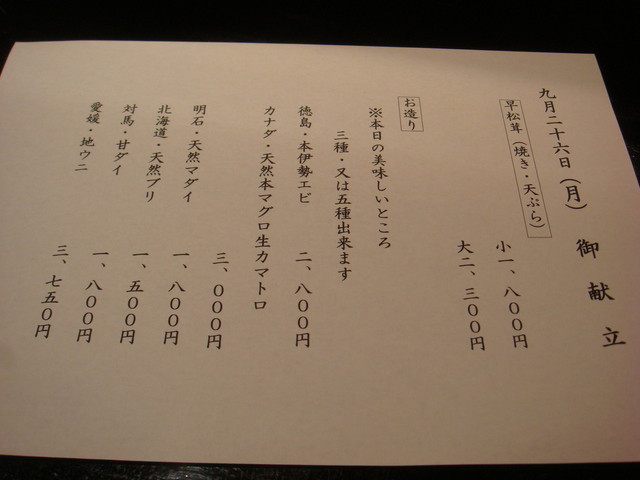 御献立
九月二十六日(月)
早松茸(焼き・天ぷら)
小一、八〇〇円
大二、三〇〇円
お造り
※本日の美味しいところ
三種・又は五種出来ます
徳島・本伊勢エビ 二、八〇〇円
カナダ・天然本マグロ生カマトロ
三、〇〇〇円
明石・天然マダイ 一、八〇〇円
北海道・天然ブリ 一、五〇〇円
対馬・甘ダイ 一、八〇〇円
愛媛・地ウニ 三、七五〇円